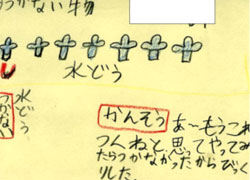 つかない物
水どう
水どう
つかない
かんそう
あ～もうこれ
つくねと思ってやってみ
たらつかなくったからびっく
りした。